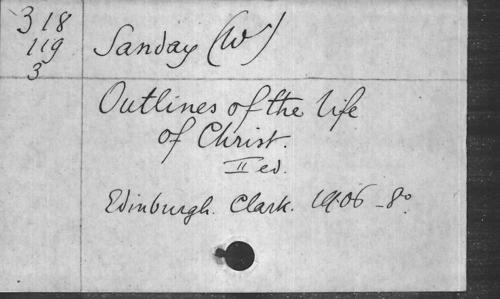 318
119
3
Sanday (W)
Outlines of the life
of Christ.
II ed.
Edinburgh. Clark. 1906 - 8°